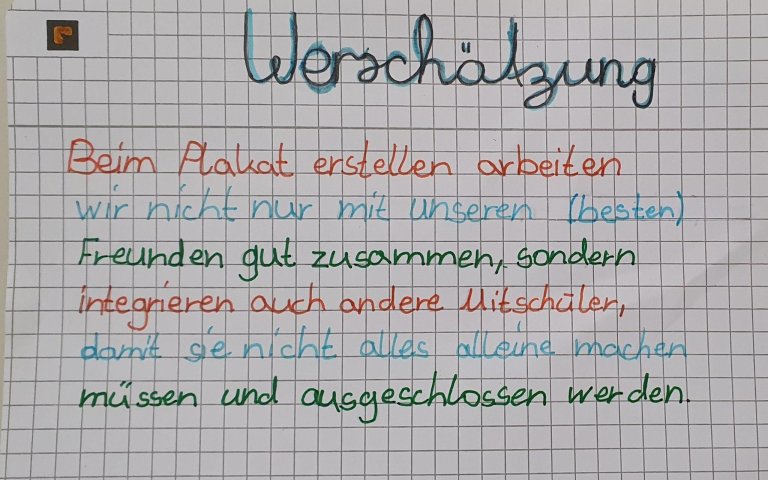 Werschätzung
Beim Plakat erstellen arbeiten
wir nicht nur mit unseren (besten)
Freunden gut zusammen, sondern
integrieren auch andere Mitschüler,
damit sie nicht alles alleine machen
müssen und ausgeschlossen werden.